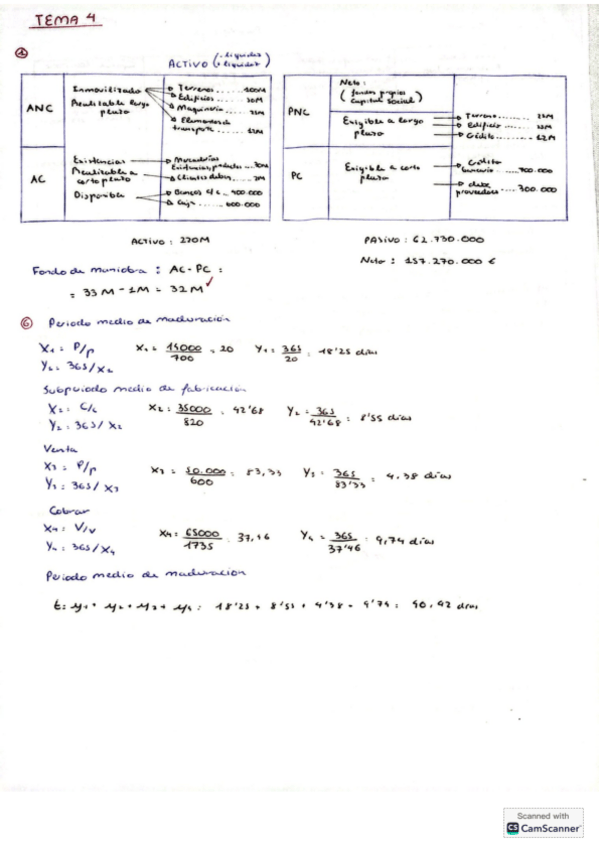 TEMA 4
①
ACTIVO (- liquidez + liquidez)
ANC
Inmovilizado
Realizable largo plazo
Terrenos ..... 100M
Edificios ..... 30M
Maquinaria .... 25M
Elementos de transporte .... 12M
AC
Existencias
Realizable a corto plazo
Disponible
Mercaderías
Clientes deben .... 2M
Bancos c/c .. 400.000
Caja ..... 600.000
PNC
Neto:
(fondos propios capital social)
Exigible a largo plazo
Terreno .......
Edificio .......
Crédito ....... 12M
PC
Exigible a corto plazo
Crédito bancario .... 700.000
debe proveedores .... 300.000
ACTIVO: 220M
PASIVO: 62.730.000
Neto: 157.270.000 €
Fondo de maniobra: AC - PC :
= 33M - 1M = 32M ✓
⑥ Periodo medio de maduración
X₁ = P/p X₁ = 14000/700 = 20 Y₁ = 365/20 = 18'25 días
Y₁ = 365/X₁
Subperiodo medio de fabricación
X₂ = C/c X₂ = 35000/820 = 42'68 Y₂ = 365/42'68 = 8'55 días
Y₂ = 365/X₂
Venta
X₃ = P/p X₃ = 50.000/600 = 83,33 Y₃ = 365/83'33 = 4,38 días
Y₃ = 365/X₃
Cobrar
X₄ = V/v X₄ = 65000/1735 = 37,46 Y₄ = 365/37'46 = 9,74 días
Y₄ = 365/X₄
Periodo medio de maduración
t: y₁ + y₂ + y₃ + y₄ = 18'25 + 8'55 + 4'38 + 9'74 = 40,92 días
Scanned with
CS CamScanner